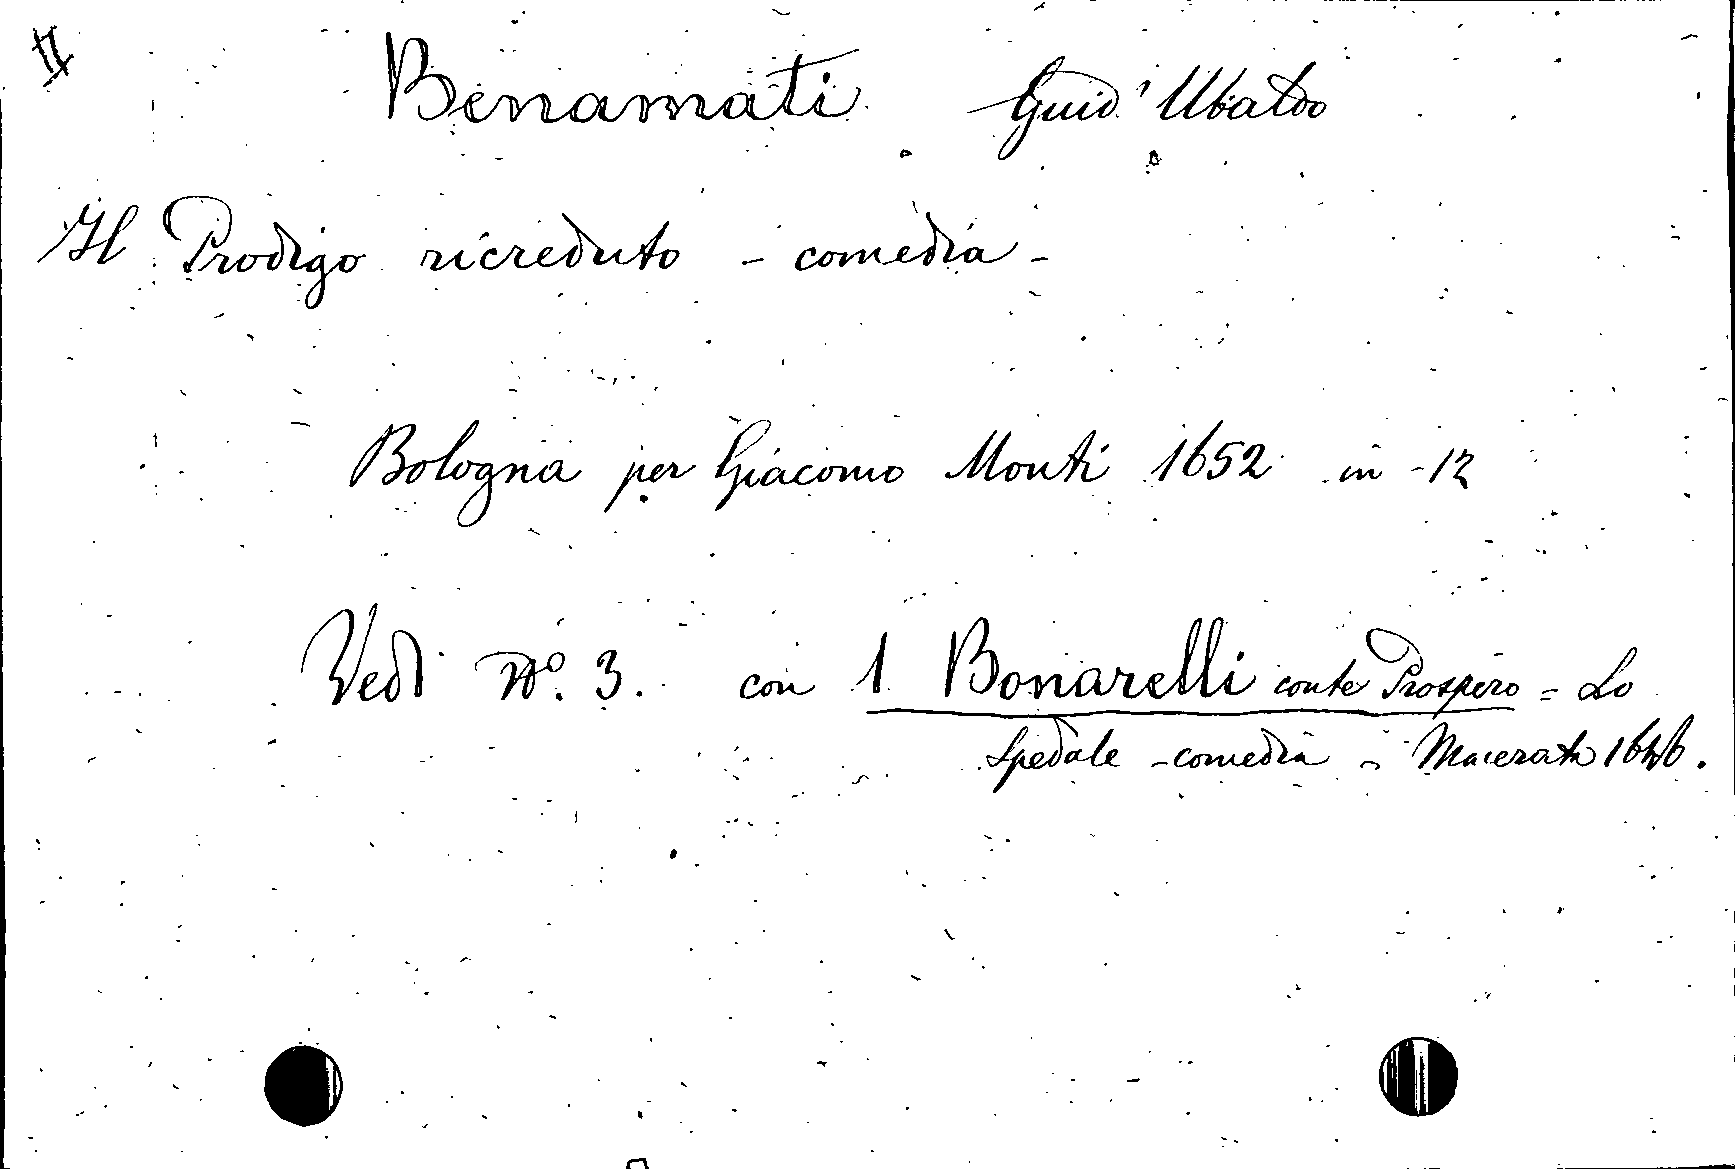 Benamati Guid' Ubaldo
Il Prodigo ricreduto - comedia -
Bologna per Giacomo Monti 1652 in - 12
Vedi No. 3. con 1 Bonarelli conte Prospero = Lo
Spedale - comedia - Macerata 1646.